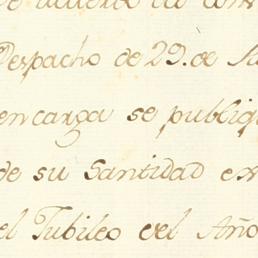 de acuerdo
Despacho de 29. de
encarga se publiq
de su Santidad en
el Jubileo del Año